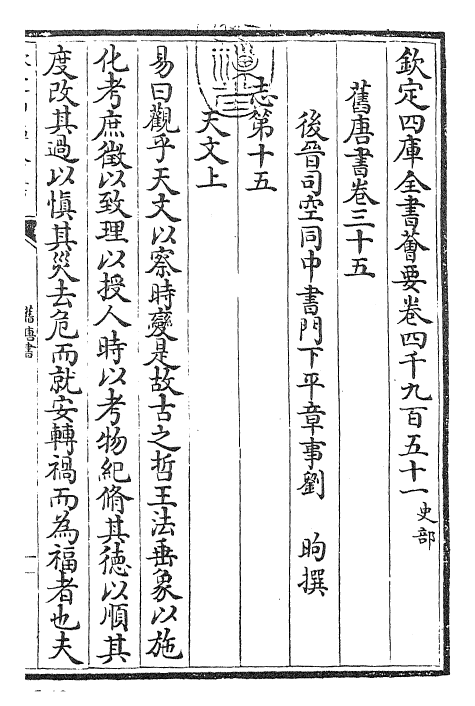 欽定四庫全書薈要卷四千九百五十一史部
舊唐書卷三十五
後晉司空同中書門下平章事劉　昫撰
志第十五
天文上
易曰觀乎天文以察時變是故古之哲王法垂象以施
化考庶徵以致理以授人時以考物紀脩其德以順其
度改其過以慎其災去危而就安轉禍而為福者也夫
舊唐書